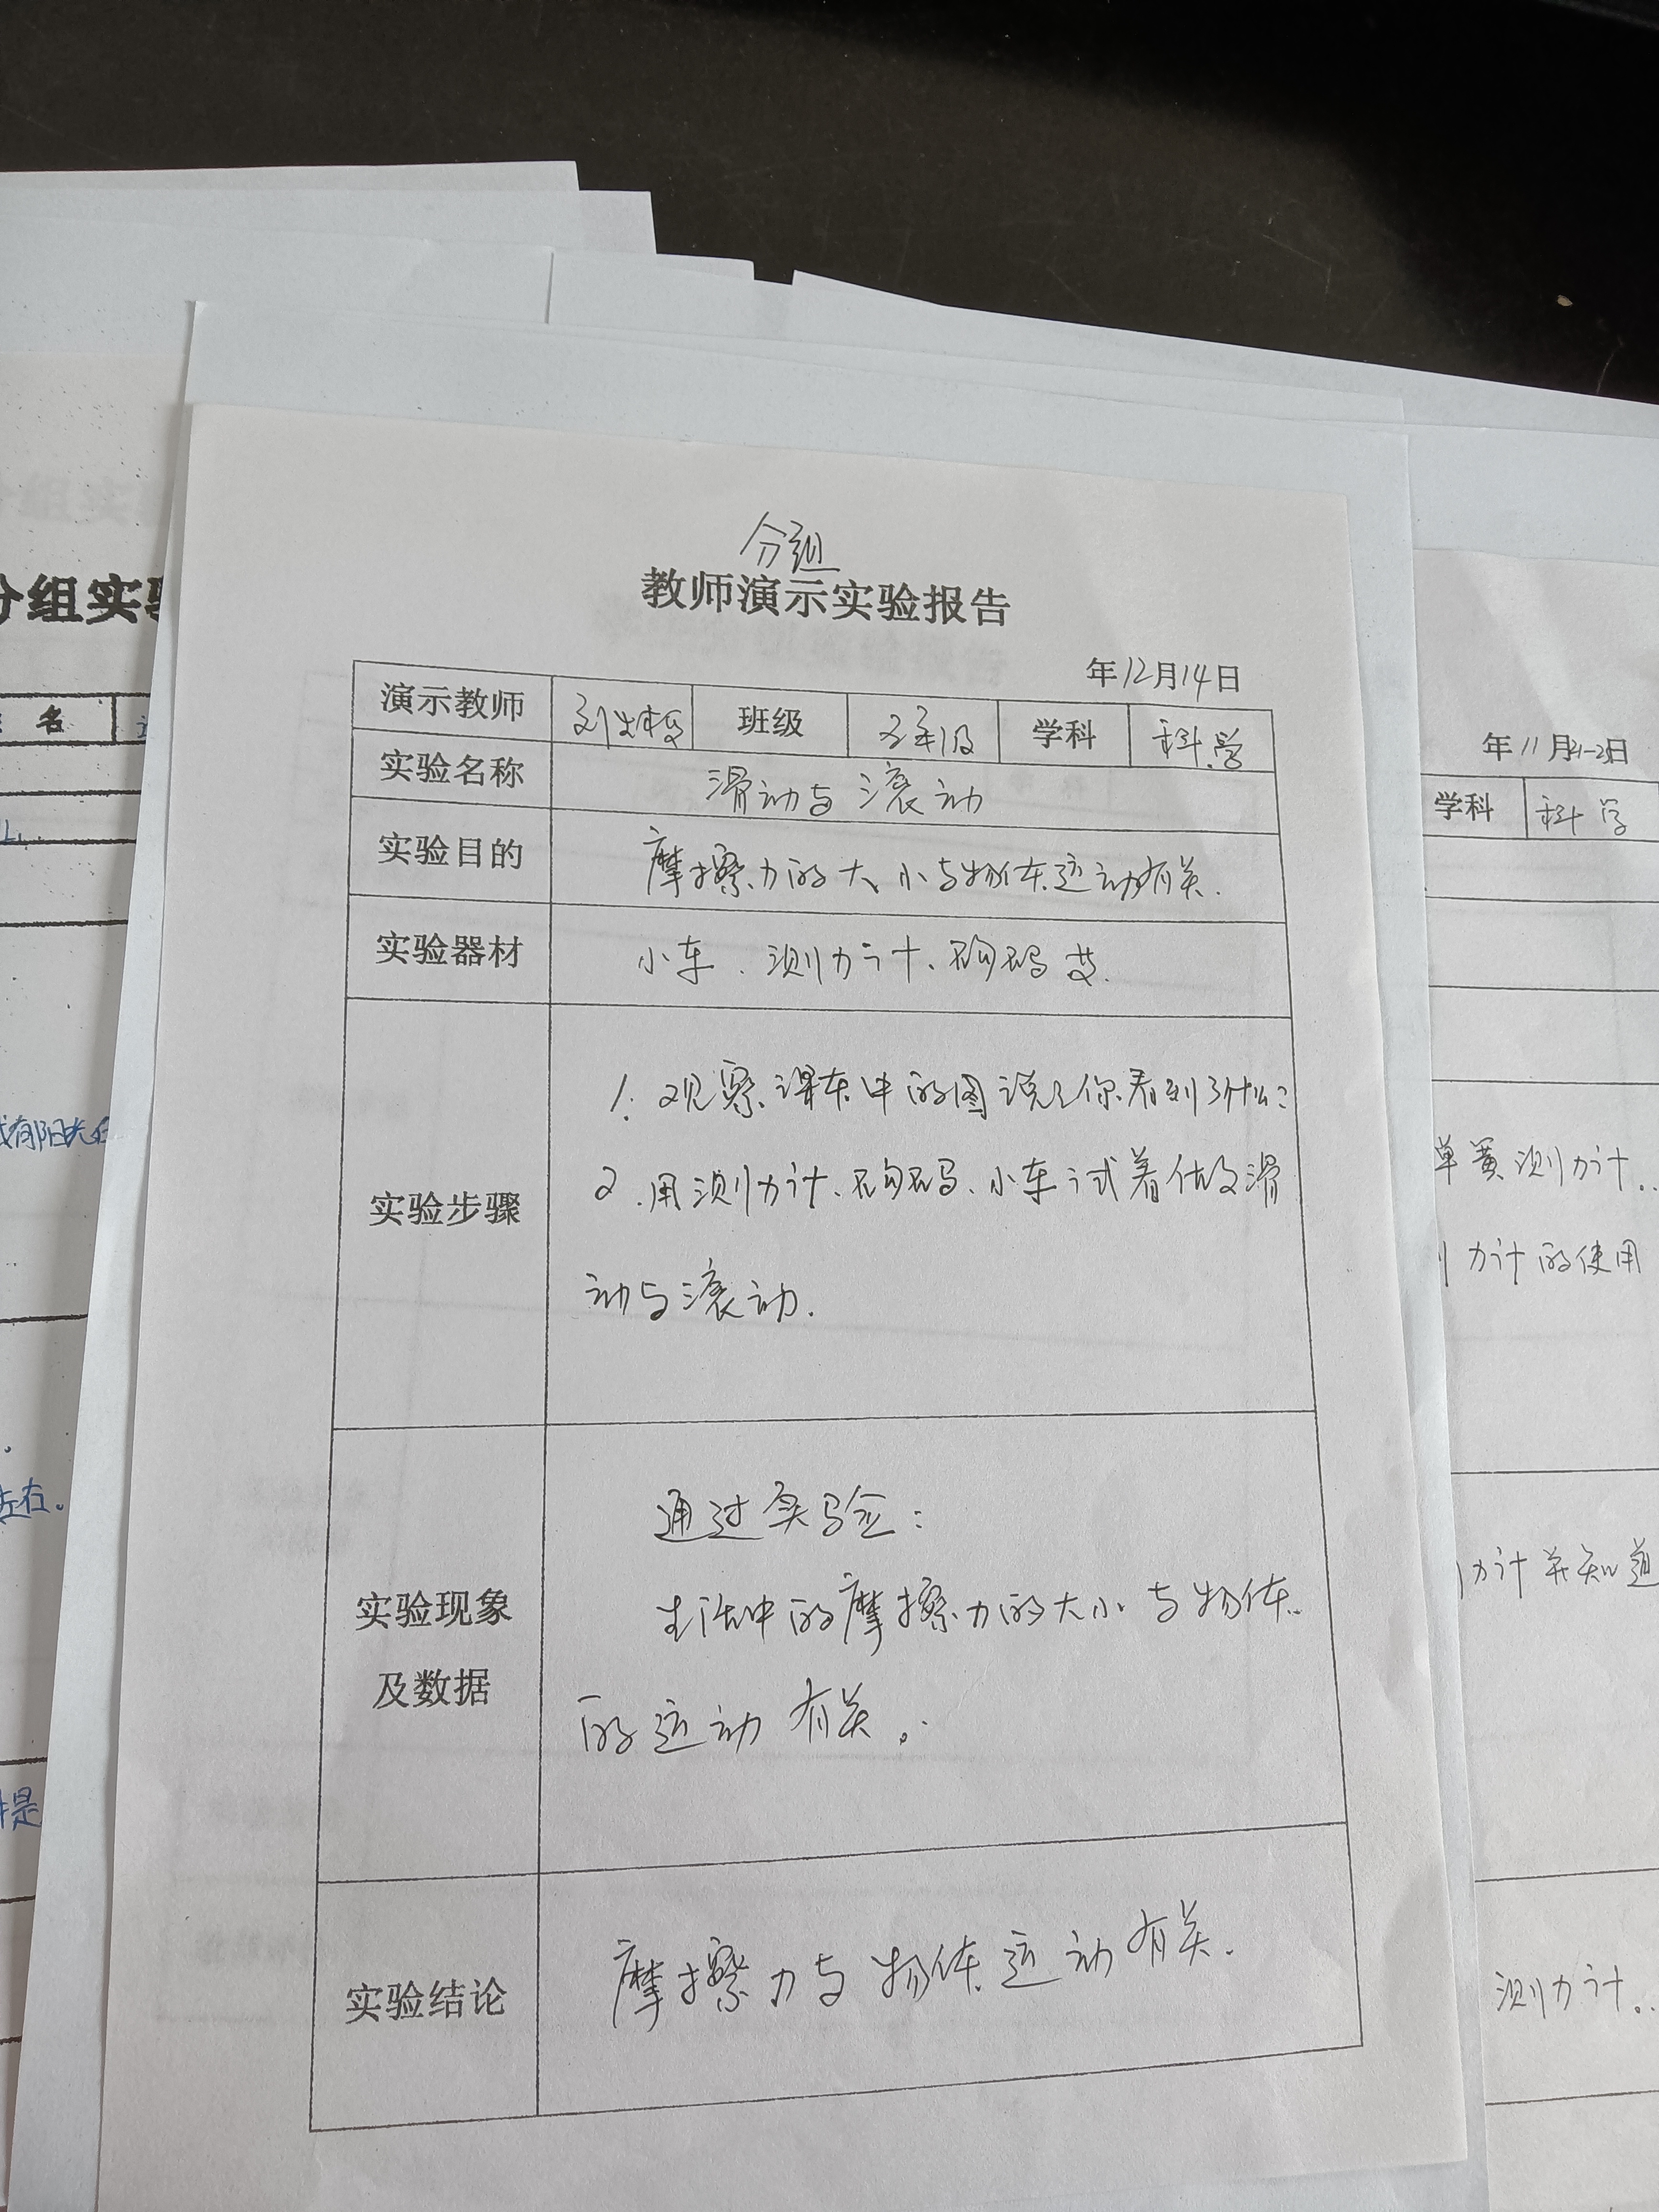 分组
教师演示实验报告
年12月14日
演示教师 班级 五年级 学科 科学
实验名称 滑动与滚动
实验目的 摩擦力的大小与物体运动有关.
实验器材 小车、测力计、砝码等.
实验步骤
1. 观察课本中的图说说你看到了什么?
2. 用测力计、砝码、小车试着做做滑
动与滚动.
实验现象
及数据
通过实验:
生活中的摩擦力的大小与物体
的运动有关。
实验结论 摩擦力与物体运动有关.
分组实
名
左右。
年11月21-2日
学科 科学
单簧测力计..
力计的使用
力计并知道
测力计..